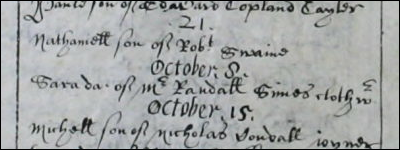 son of Edward Copland Tayler
21.
Nathaniell son of Robt Swaine
October. 8.
Sara da. of Mr Randall Simes clothwr
October. 15.
Michell son of Nicholas Vondall joyner